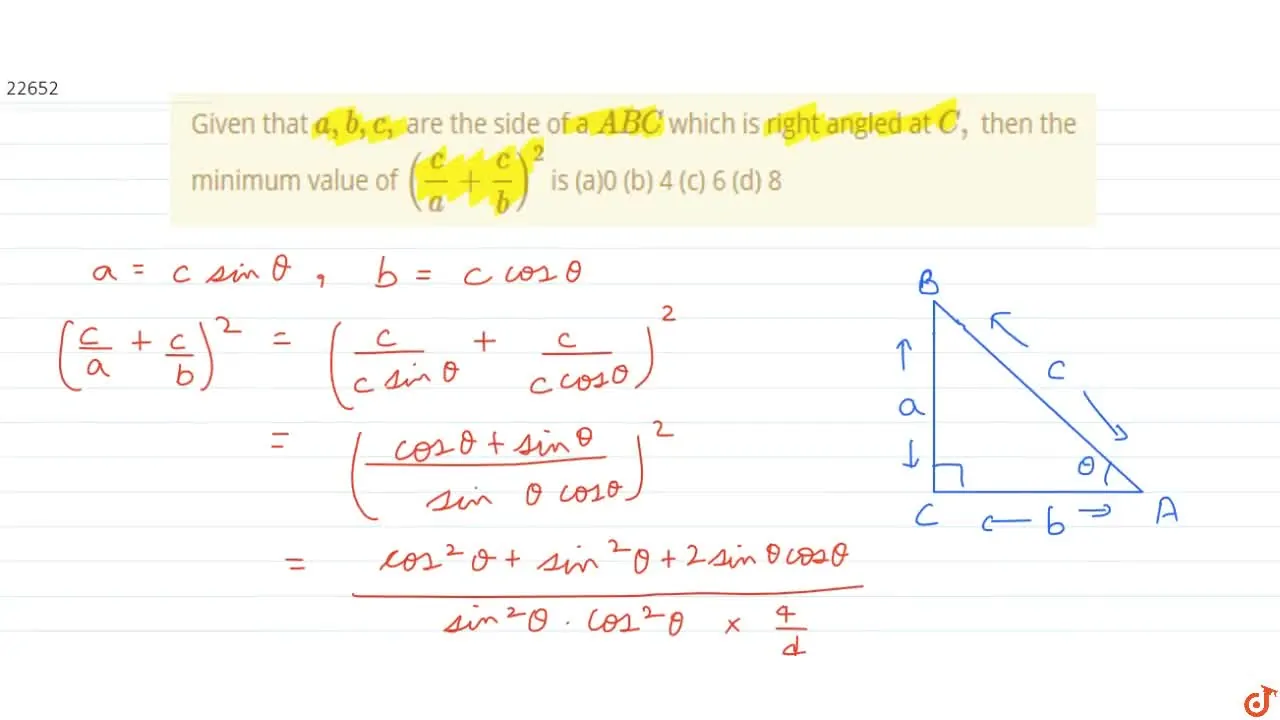 22652
Given that a, b, c, are the side of a ABC which is right angled at C, then the
minimum value of (c/a + c/b)² is (a)0 (b) 4 (c) 6 (d) 8
a = c sin θ , b = c cos θ
(c/a + c/b)² = (c/(c sin θ) + c/(c cos θ))²
= ((cos θ + sin θ)/(sin θ cos θ))²
= (cos² θ + sin² θ + 2 sin θ cos θ)/(sin² θ . cos² θ × 4/d)
B
c
a
θ
C b A